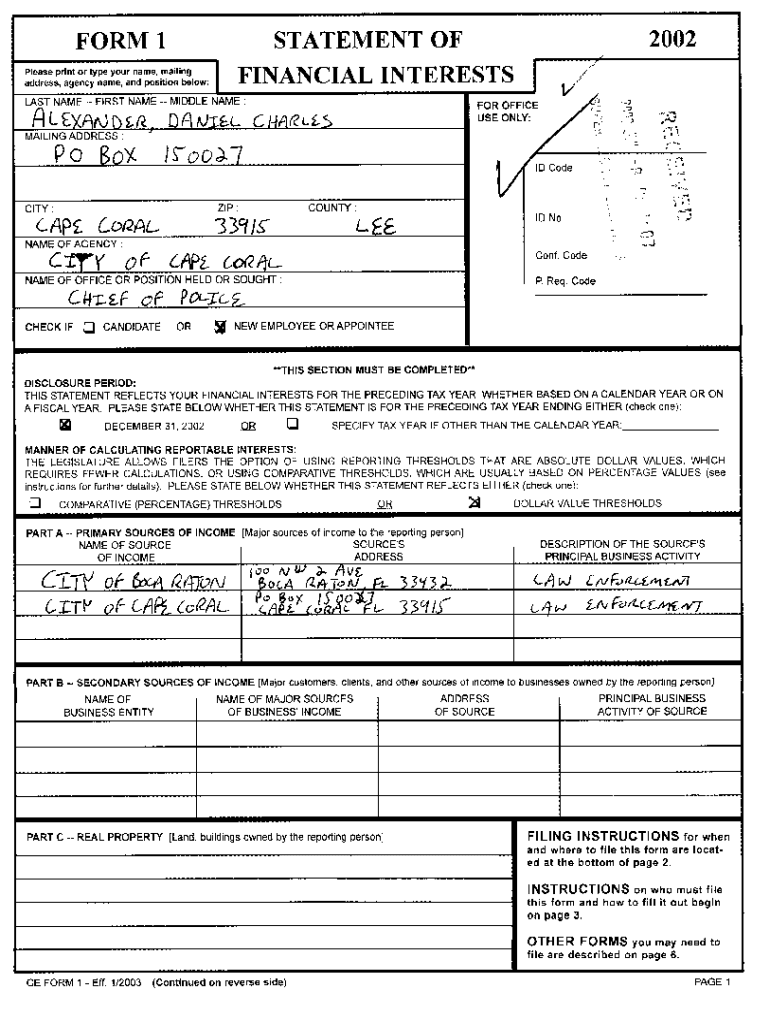 FORM 1
STATEMENT OF
FINANCIAL INTERESTS
2002
Please print or type your name, mailing
address, agency name, and position below:
LAST NAME -- FIRST NAME -- MIDDLE NAME :
ALEXANDER, DANIEL CHARLES
MAILING ADDRESS :
PO BOX 150027
CITY : ZIP : COUNTY :
CAPE CORAL 33915 LEE
NAME OF AGENCY :
CITY OF CAPE CORAL
NAME OF OFFICE OR POSITION HELD OR SOUGHT :
CHIEF OF POLICE
CHECK IF CANDIDATE OR NEW EMPLOYEE OR APPOINTEE
FOR OFFICE
USE ONLY:
RECEIVED
ID Code
ID No
Conf. Code
P. Req. Code
**THIS SECTION MUST BE COMPLETED**
DISCLOSURE PERIOD:
THIS STATEMENT REFLECTS YOUR FINANCIAL INTERESTS FOR THE PRECEDING TAX YEAR, WHETHER BASED ON A CALENDAR YEAR OR ON
A FISCAL YEAR. PLEASE STATE BELOW WHETHER THIS STATEMENT IS FOR THE PRECEDING TAX YEAR ENDING EITHER (check one):
DECEMBER 31, 2002 OR SPECIFY TAX YEAR IF OTHER THAN THE CALENDAR YEAR:
MANNER OF CALCULATING REPORTABLE INTERESTS:
THE LEGISLATURE ALLOWS FILERS THE OPTION OF USING REPORTING THRESHOLDS THAT ARE ABSOLUTE DOLLAR VALUES, WHICH
REQUIRES FEWER CALCULATIONS, OR USING COMPARATIVE THRESHOLDS, WHICH ARE USUALLY BASED ON PERCENTAGE VALUES (see
instructions for further details). PLEASE STATE BELOW WHETHER THIS STATEMENT REFLECTS EITHER (check one):
COMPARATIVE (PERCENTAGE) THRESHOLDS OR DOLLAR VALUE THRESHOLDS
PART A -- PRIMARY SOURCES OF INCOME [Major sources of income to the reporting person]
NAME OF SOURCE SOURCE'S DESCRIPTION OF THE SOURCE'S
OF INCOME ADDRESS PRINCIPAL BUSINESS ACTIVITY
100 NW 2 AVE
CITY OF BOCA RATON BOCA RATON FL 33432 LAW ENFORCEMENT
PO BOX 150027
CITY OF CAPE CORAL CAPE CORAL FL 33915 LAW ENFORCEMENT
PART B -- SECONDARY SOURCES OF INCOME [Major customers, clients, and other sources of income to businesses owned by the reporting person]
NAME OF NAME OF MAJOR SOURCES ADDRESS PRINCIPAL BUSINESS
BUSINESS ENTITY OF BUSINESS' INCOME OF SOURCE ACTIVITY OF SOURCE
PART C -- REAL PROPERTY [Land, buildings owned by the reporting person]
FILING INSTRUCTIONS for when
and where to file this form are locat-
ed at the bottom of page 2.
INSTRUCTIONS on who must file
this form and how to fill it out begin
on page 3.
OTHER FORMS you may need to
file are described on page 6.
CE FORM 1 - Eff. 1/2003 (Continued on reverse side) PAGE 1